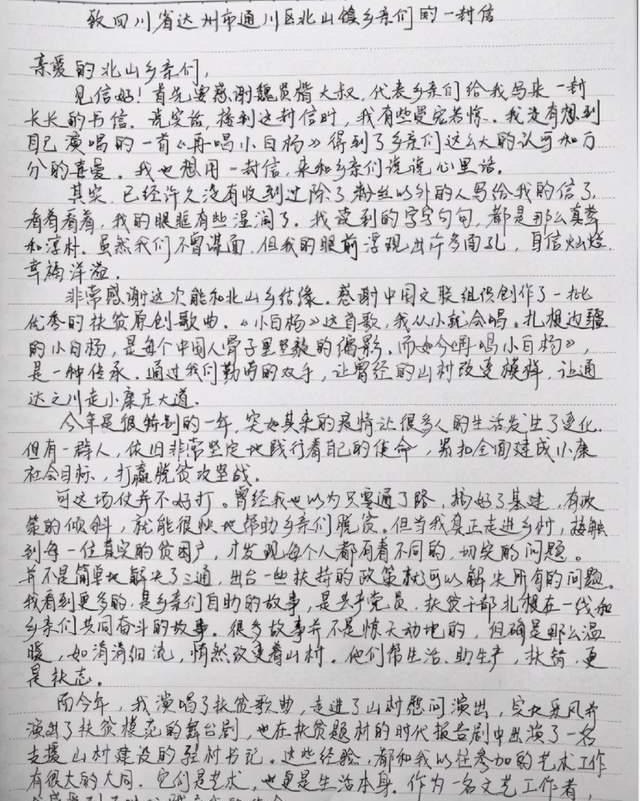 致四川省达州市通川区北山镇乡亲们的一封信
亲爱的北山乡亲们，
见信好！首先要感谢魏贤楷大叔，代表乡亲们给我写来一封
长长的书信。说实话，接到这封信时，我有些受宠若惊。我没有想到
自己演唱的一首《再唱小白杨》得到了乡亲们这么大的认可和万
分的喜爱。我也想用一封信，来和乡亲们说说心里话。
其实，已经许久没有收到过除了粉丝以外的人写给我的信了。
看着看着，我的眼眶有些湿润了。我读到的字字句句，都是那么真挚
和淳朴。虽然我们不曾谋面，但我的眼前浮现出许多面孔，自信灿烂，
幸福洋溢。
非常感谢这次能和北山乡结缘。感谢中国文联组织创作了一批
优秀的扶贫原创歌曲。《小白杨》这首歌，我从小就会唱。扎根边疆
的小白杨，是每个中国人骨子里坚毅的缩影。而如今《再唱小白杨》，
是一种传承。通过我们勤劳的双手，让曾经的山村改变模样，让通
达之川走小康庄大道。
今年是很特别的一年，突如其来的疫情让很多人的生活发生了变化。
但有一群人，依旧非常坚定地践行着自己的使命，紧扣全面建成小康
社会目标，打赢脱贫攻坚战。
可这场仗并不好打。曾经我也以为只要通了路，搞好了基建，有政
策的倾斜，就能很快地帮助乡亲们脱贫。但当我真正走进乡村，接触
到每一位真实的贫困户，才发现每个人都有着不同的，切实的问题。
并不是简单地解决了三通，出台一些扶持的政策就可以解决所有的问题。
我看到更多的，是乡亲们自助的故事，是共产党员、扶贫干部扎根在一线和
乡亲们共同奋斗的故事。很多故事并不是惊天动地的，但确是那么温
暖，如涓涓细流，悄然改变着山村。他们帮生活、助生产，扶智，更
是扶志。
而今年，我演唱了扶贫歌曲，走进了山村慰问演出，
演出了扶贫模范的舞台剧，也在扶贫题材的时代报告剧中出演了一名
支援山村建设的驻村书记。这些经验，都和我以往参加的艺术工作
有很大的不同。它们是艺术，也更是生活本身。作为一名文艺工作者，